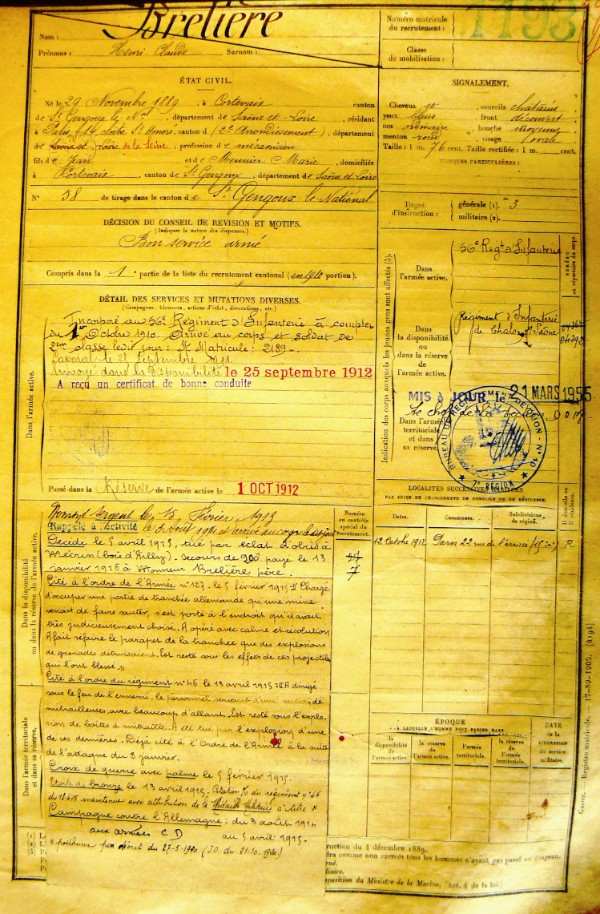 Nom : Brelière
Prénoms : Henri Claude Surnom :
Numéro matricule
du recrutement :
1193
Classe
de mobilisation :
ÉTAT CIVIL.
Né le 29 Novembre 1889, à Cortevaix canton
de St Gengoux le Nal, département de Saône et Loire,
Paris, canton d (2e Arrondissement), département
de la Seine, profession de mécanicien
fils de Jean et de Meunier Marie, domiciliés
à Cortevaix, canton de St Gengoux, département de Saône et Loire
N° 38 de tirage dans le canton de St Gengoux le National
SIGNALEMENT.
Cheveux et sourcils chatains
yeux bleus front découvert
nez bouche moyenne
menton rond visage
Taille : 1 m. 76 cent. Taille rectifiée : 1 m. cent.
MARQUES PARTICULIÈRES :
DÉCISION DU CONSEIL DE REVISION ET MOTIFS.
(Indiquer la nature des dispenses.)
Bon service armé
Compris dans la 1re partie de la liste du recrutement cantonal (en 1910 portion).
Degré
d'instruction :
générale (1). 3
militaire (2).
DÉTAIL DES SERVICES ET MUTATIONS DIVERSES.
(Campagnes, blessures, actions d'éclat, décorations, etc.)
Incorporé au 56e Régiment d'Infanterie à compter
du 1er Octobre 1910. Arrivé au corps et soldat de
2eme classe ledit jour. No Matricule : 2189.
Caporal le 25 Septembre 1911.
Envoyé dans la Disponibilité le 25 septembre 1912
A reçu un certificat de bonne conduite
Dans l'armée active.
Passé dans la Réserve de l'armée active le 1 OCT 1912
Indication des corps auxquels les jeunes gens sont affectés (3).
Dans
l'armée active.
56e Régt d'Infanterie
Dans
la disponibilité
ou dans la réserve
de l'armée active.
Régiment d'Infanterie
de Chalon s/ Saône
MIS à JOUR le 21 MARS 1955
Dans l'armée
territoriale
et dans
sa réserve.
LOCALITÉS SUCCESSIVES
Dates. Communes. Subdivisions
de région.
12 Octobre 1912 Paris 22 rue
Numéro
au contrôle
spécial du
recrutement.
7
Nommé Sergent le 15 Février 1915
Rappelé à l'activité le 3 août 1914 et arrivé au corps le dit jour
Décédé le 5 avril 1915, tué par éclat d'obus à
Mécrin (bois d'Ailly). Secours de 200f payé le 13
janvier 1916 à Monsieur Brelière père.
Cité à l'ordre de l'Armée n° 127, le 5 février 1915 "Chargé
d'occuper une partie de tranchée allemande qu'une mine
venait de faire sauter, s'est porté à l'endroit qu'il avait
très judicieusement choisi. A opéré avec calme et résolution.
A fait refaire le parapet de la tranchée que des explosions
de grenades détruisaient. Est resté sous les effets de ces projectiles
qui l'ont blessé."
Cité à l'ordre du régiment n° 46 le 13 avril 1915 : "A dirigé
sous le feu de l'ennemi, le personnel servant d'une section de
mitrailleuses, avec beaucoup d'allant. Est resté sous l'explo-
sion de boîtes à mitraille. A été tué par l'explosion d'une
de ces dernières. Déjà cité à l'Ordre de l'Armée à la suite
de l'attaque du 8 janvier.
Croix de guerre avec palme le 5 février 1915.
Etoile de bronze le 13 avril 1915. Citation du régiment n° 46
avec attribution de la Médaille Militaire à titre
Campagne contre l'Allemagne : du 3 août 1914
aux armées C D au 5 avril 1915.
posthume par décret du 27-5-1920 (J.O. du 21-10-1920)
Dans la disponibilité
ou dans la réserve de l'armée active.
Dans l'armée territoriale
et dans sa réserve.
ÉPOQUE
À LAQUELLE L'HOMME DOIT PASSER DANS
la disponibilité
de l'armée active.
la réserve
de l'armée active.
l'armée
territoriale.
la réserve
de l'armée
territoriale.
DATE
de la
LIBÉRATION
du service
militaire.
Registre matricule. 17-89-1905. [8191]